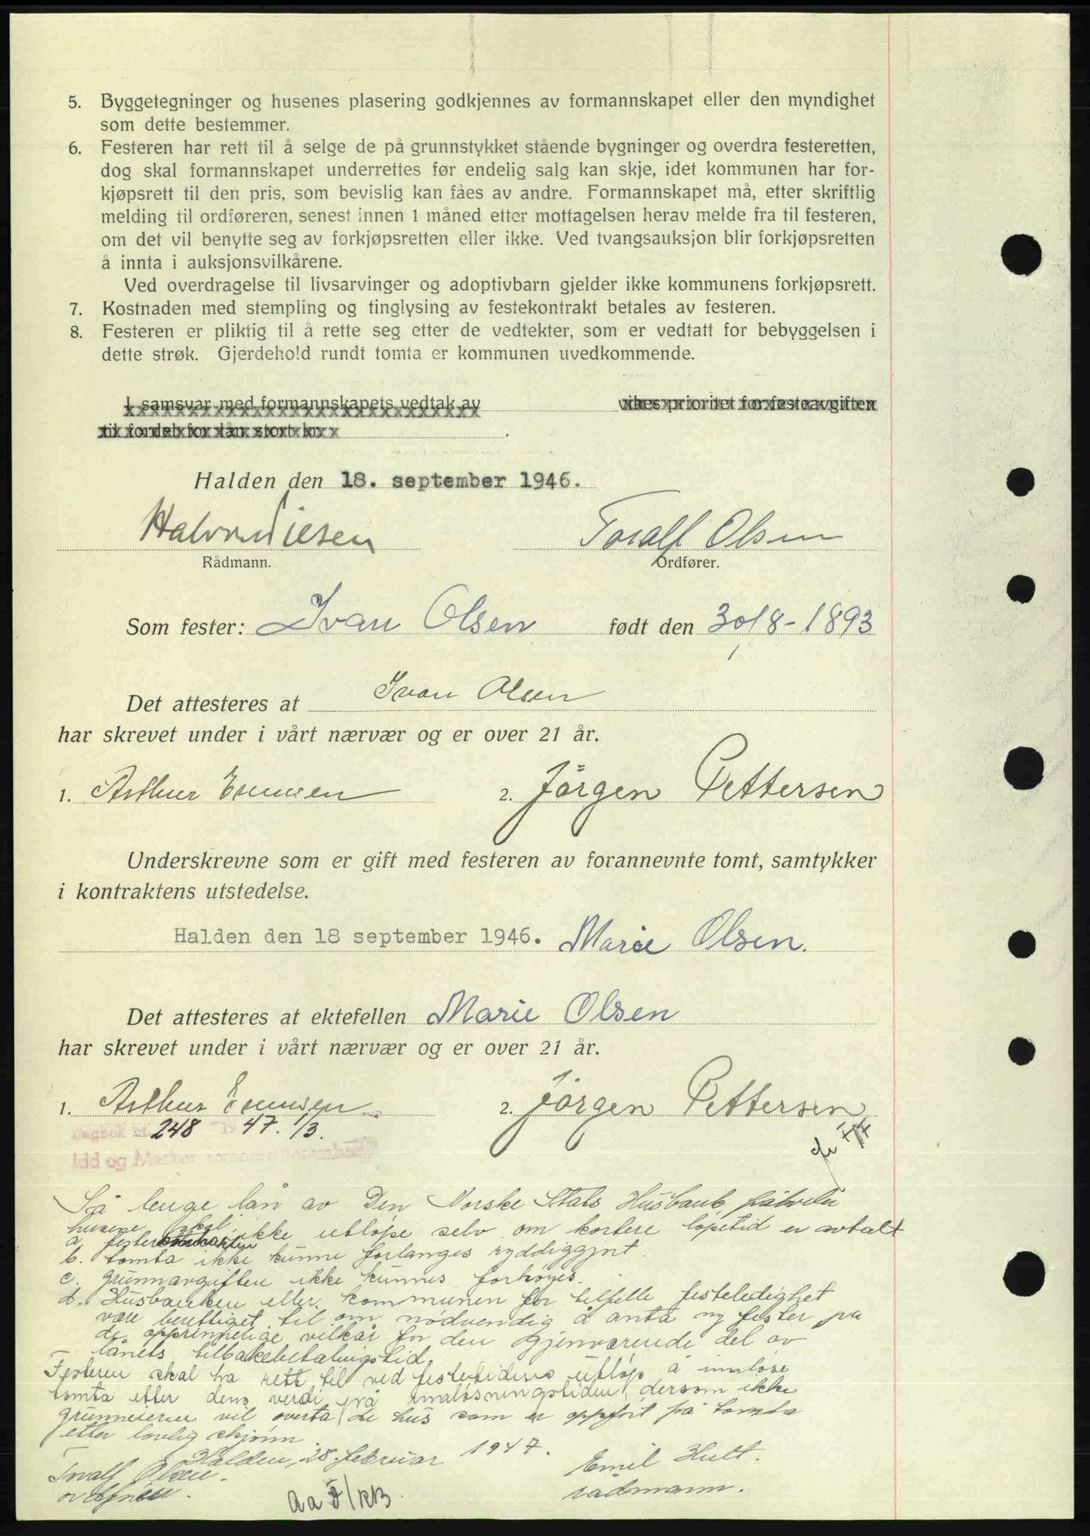 5. Byggetegninger og husenes plasering godkjennes av formannskapet eller den myndighet
som dette bestemmer.
6. Festeren har rett til å selge de på grunnstykket stående bygninger og overdra festeretten,
dog skal formannskapet underrettes før endelig salg kan skje, idet kommunen har for-
kjøpsrett til den pris, som bevislig kan fåes av andre. Formannskapet må, etter skriftlig
melding til ordføreren, senest innen 1 måned etter mottagelsen herav melde fra til festeren,
om det vil benytte seg av forkjøpsretten eller ikke. Ved tvangsauksjon blir forkjøpsretten
å innta i auksjonsvilkårene.
Ved overdragelse til livsarvinger og adoptivbarn gjelder ikke kommunens forkjøpsrett.
7. Kostnaden med stempling og tinglysing av festekontrakt betales av festeren.
8. Festeren er pliktig til å rette seg etter de vedtekter, som er vedtatt for bebyggelsen i
dette strøk. Gjerdehold rundt tomta er kommunen uvedkommende.
I samsvar med formannskapets vedtak av vikes prioritet for festeavgiften
til fordel for lån stort kr.
Halden den 18. september 1946.
Toralf Olsen
Rådmann. Ordfører.
Som fester: Ivan Olsen født den 30/8-1893
Det attesteres at Ivan Olsen
har skrevet under i vårt nærvær og er over 21 år.
1. Arthur 2. Jörgen Pettersen
Underskrevne som er gift med festeren av forannevnte tomt, samtykker
i kontraktens utstedelse.
Halden den 18 september 1946. Marie Olsen.
Det attesteres at ektefellen Marie Olsen
har skrevet under i vårt nærvær og er over 21 år.
1. Arthur 2. Jörgen Pettersen
Dagbok 248 1947. 1/3.
Idd og Marker
Så lenge lån av Den Norske Stats Husbank påhviler
husene skal ikke utløpe selv om kortere løpetid er avtalt
b. tomta ikke kunne forlanges ryddiggjort.
c. grunnavgiften ikke kunnes forhøyes.
d. Husbanken eller kommunen for tilfelle festeledighet
være berettiget til om nødvendig å anta ny fester på
de opprinnelige vilkår for den gjenværende del av
lånets tilbakebetalingstid.
Festeren skal ha rett til ved festetidens utløp å innløse
tomta etter dens verdi på innløsningstiden, dersom ikke
grunneieren vil overta de hus som er oppført på tomta
etter lovlig skjønn
Halden, 28. februar 1947.
Toralf Olsen. Emil Hult.
ordfører. rådmann.